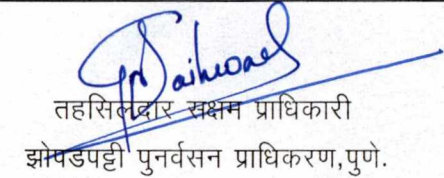 तहसिलदार सक्षम प्राधिकारी
झोपडपट्टी पुनर्वसन प्राधिकरण,पुणे.